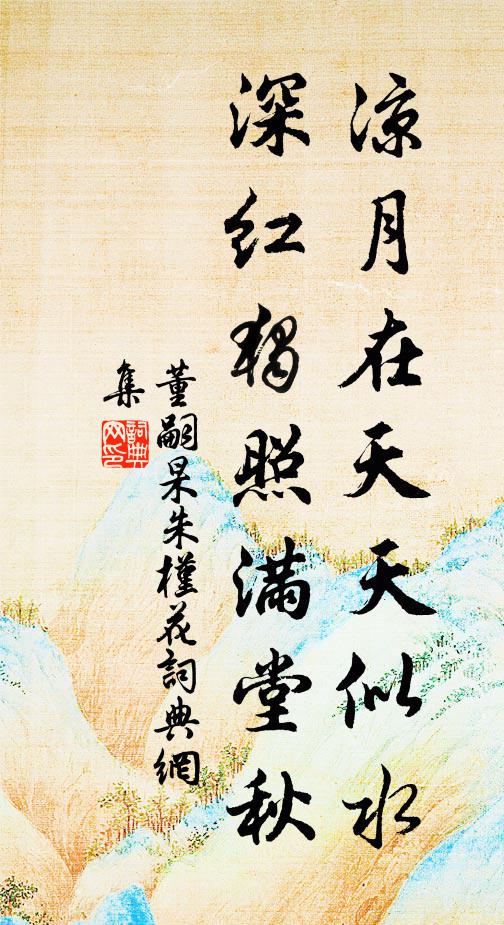 凉月在天天似水
深红独照满堂秋
董嗣杲朱槿花詞典網
集
詞典
网印